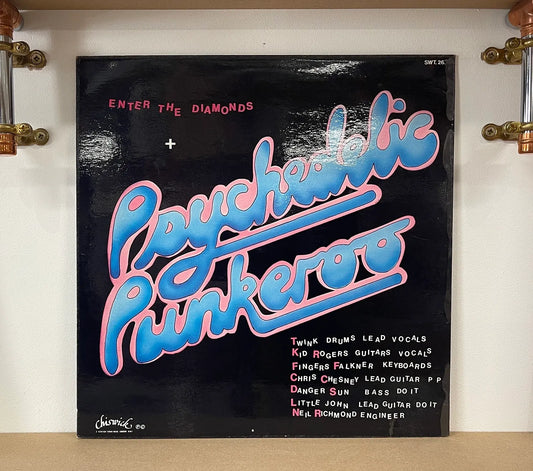 SWT. 26
ENTER THE DIAMONDS
+
Psychedelic
Punkeroo
TWINK DRUMS LEAD VOCALS
KID ROGERS GUITARS VOCALS
FINGERS FALKNER KEYBOARDS
CHRIS CHESNEY LEAD GUITAR P P
DANGER SUN BASS DO IT
LITTLE JOHN LEAD GUITAR DO IT
NEIL RICHMOND ENGINEER
Chiswick